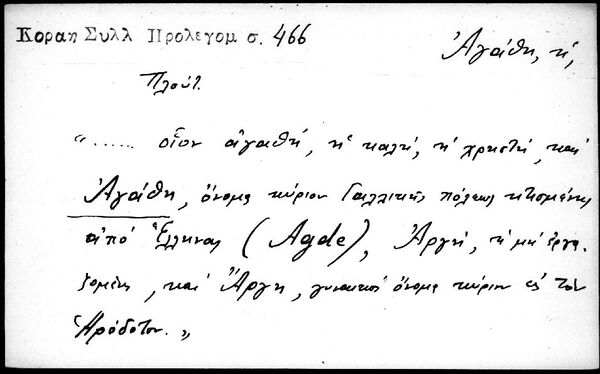 Κοραη Συλλ Προλεγομ σ. 466
Ἀγάθη, ἡ,
Πλούτ.
"...... οἷον ἀγαθή, ἡ καλή, ἡ χρηστή, καὶ
Ἀγάθη, ὄνομα κύριον Γαλλικῆς πόλεως κτισμένης
ἀπό Ἕλληνας (Agde), Ἀργή, ἡ μή ἐργα-
ζομένη, καί Ἄργη, γυναικός ὄνομα κύριον εἰς τόν
Ἡρόδοτον."